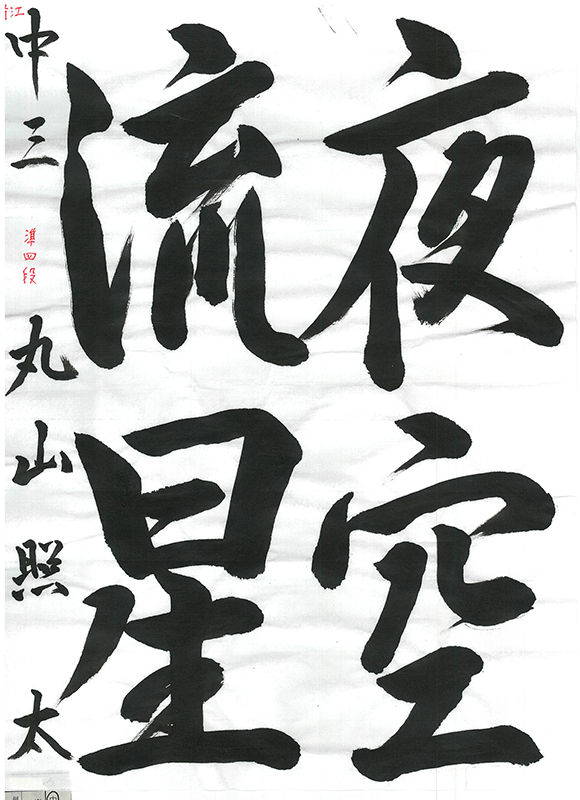 夜空
流星
中三 丸山照太
準四段